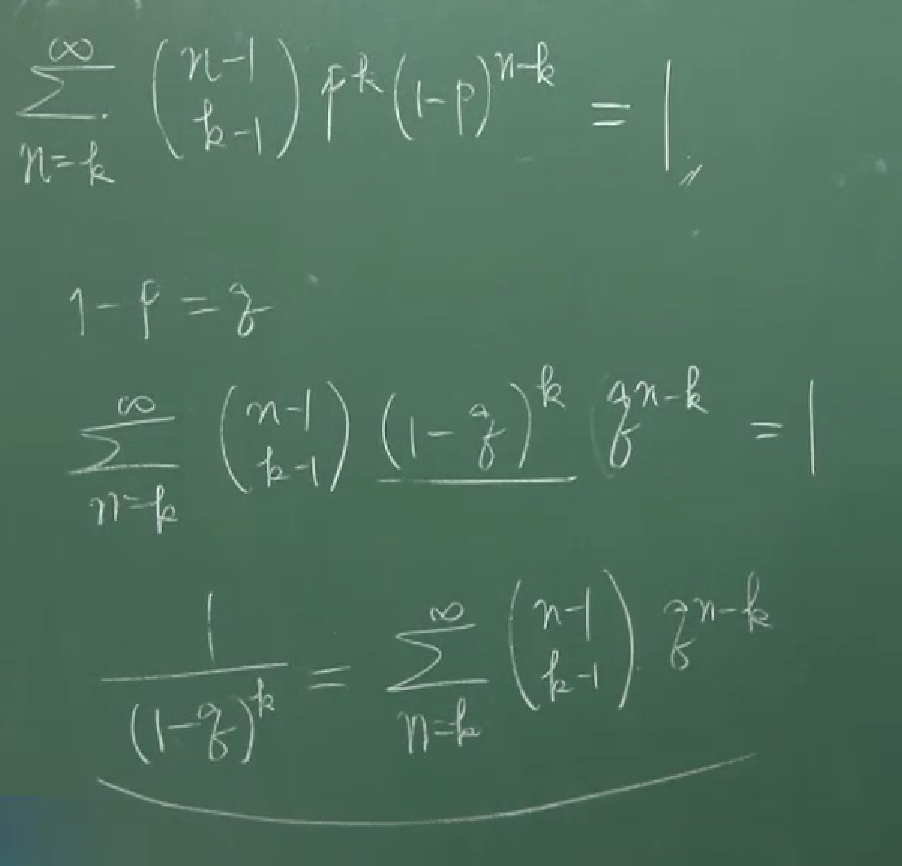 $\sum_{n=k}^{\infty} \binom{n-1}{k-1} p^k (1-p)^{n-k} = 1$
$1-p = q$
$\sum_{n=k}^{\infty} \binom{n-1}{k-1} \underline{(1-q)^k} q^{n-k} = 1$
$\frac{1}{(1-q)^k} = \sum_{n=k}^{\infty} \binom{n-1}{k-1} q^{n-k}$